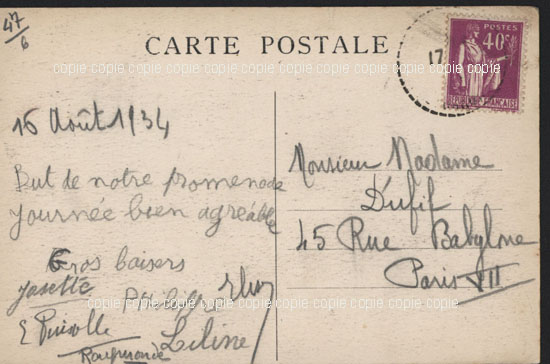 47
6
CARTE POSTALE
POSTES
40c
RÉPUBLIQUE FRANÇAISE
17
copie copie copie copie copie copie copie copie copie copie copie
16 Août 1934
But de notre promenade
Journée bien agreable
Gros baisers
Josette
Liline
Raymonde
Monsieur Madame
Dufif
45 Rue Babylone
Paris VII
copie copie copie copie copie copie copie copie copie copie copie